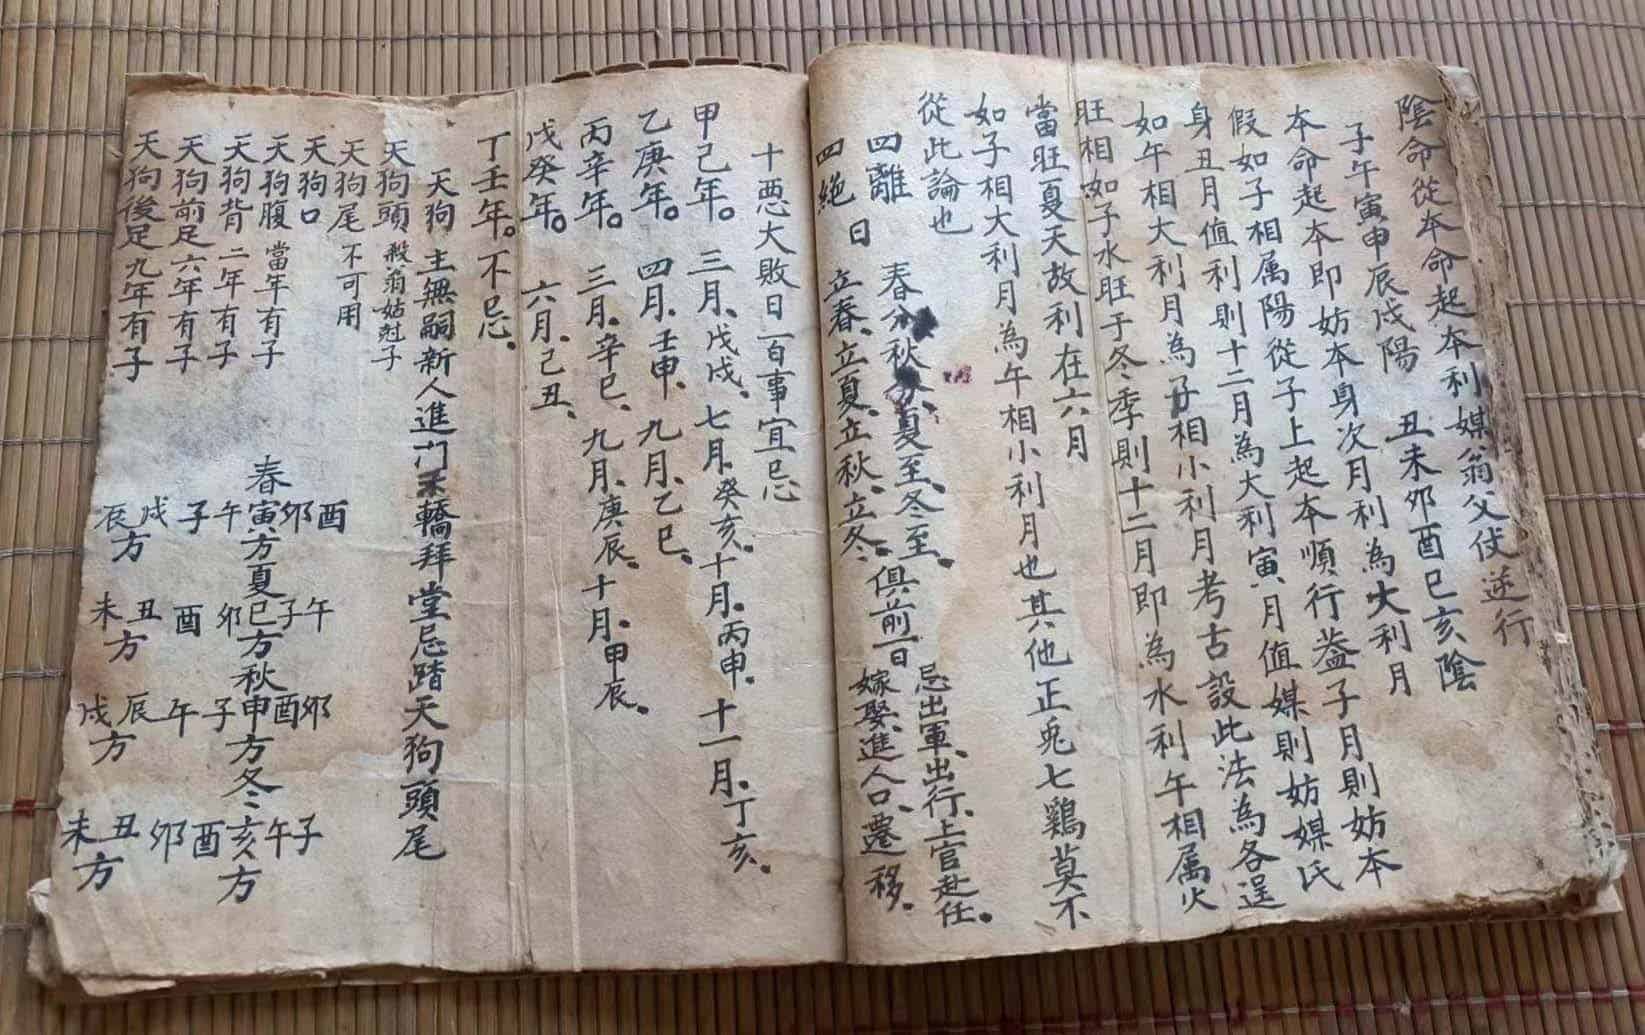 陰命從本命起本利媒翁父仗逆行
子午寅申辰戌陽 丑未卯酉巳亥陰
本命起本即妨本身次月利為大利月
假如子相属陽從子上起本順行葢子月則妨本
身丑月值利則十二月為大利寅月值媒則妨媒氏
如午相大利月為子相小利月考古設此法為各逞
旺相如子水旺于冬季則十二月即為水利午相属火
當旺夏天故利在六月
如子相大利月為午相小利月也其他正兎七鷄莫不
從此論也
四離 春分秋分夏至、冬至、 忌出軍、出行、上官赴任。
四絕日 立春、立夏、立秋、立冬、 俱前一日 嫁娶、進人口、遷移。
十悪大敗日一百事宜忌
甲己年。三月、戊戌、七月、癸亥、十月、丙申、十一月、丁亥、
乙庚年。四月、壬申、九月、乙巳、
丙辛年。三月、辛巳、九月、庚辰、十月、甲辰、
戊癸年。六月、己丑、
丁壬年。不忌、
天狗 主無嗣新人進门下轎拜堂忌踏天狗頭尾
天狗頭 殺翁姑尅子
天狗尾 不可用
天狗口
天狗腹 當年有子
天狗背 二年有子
天狗前足六年有子
天狗後足九年有子
酉 午 卯 子
卯 子 酉 午
春寅方夏巳方秋申方冬亥方
午 卯 子 酉
子 酉 午 卯
戌 丑 辰 丑
辰方 未方 戌方 未方